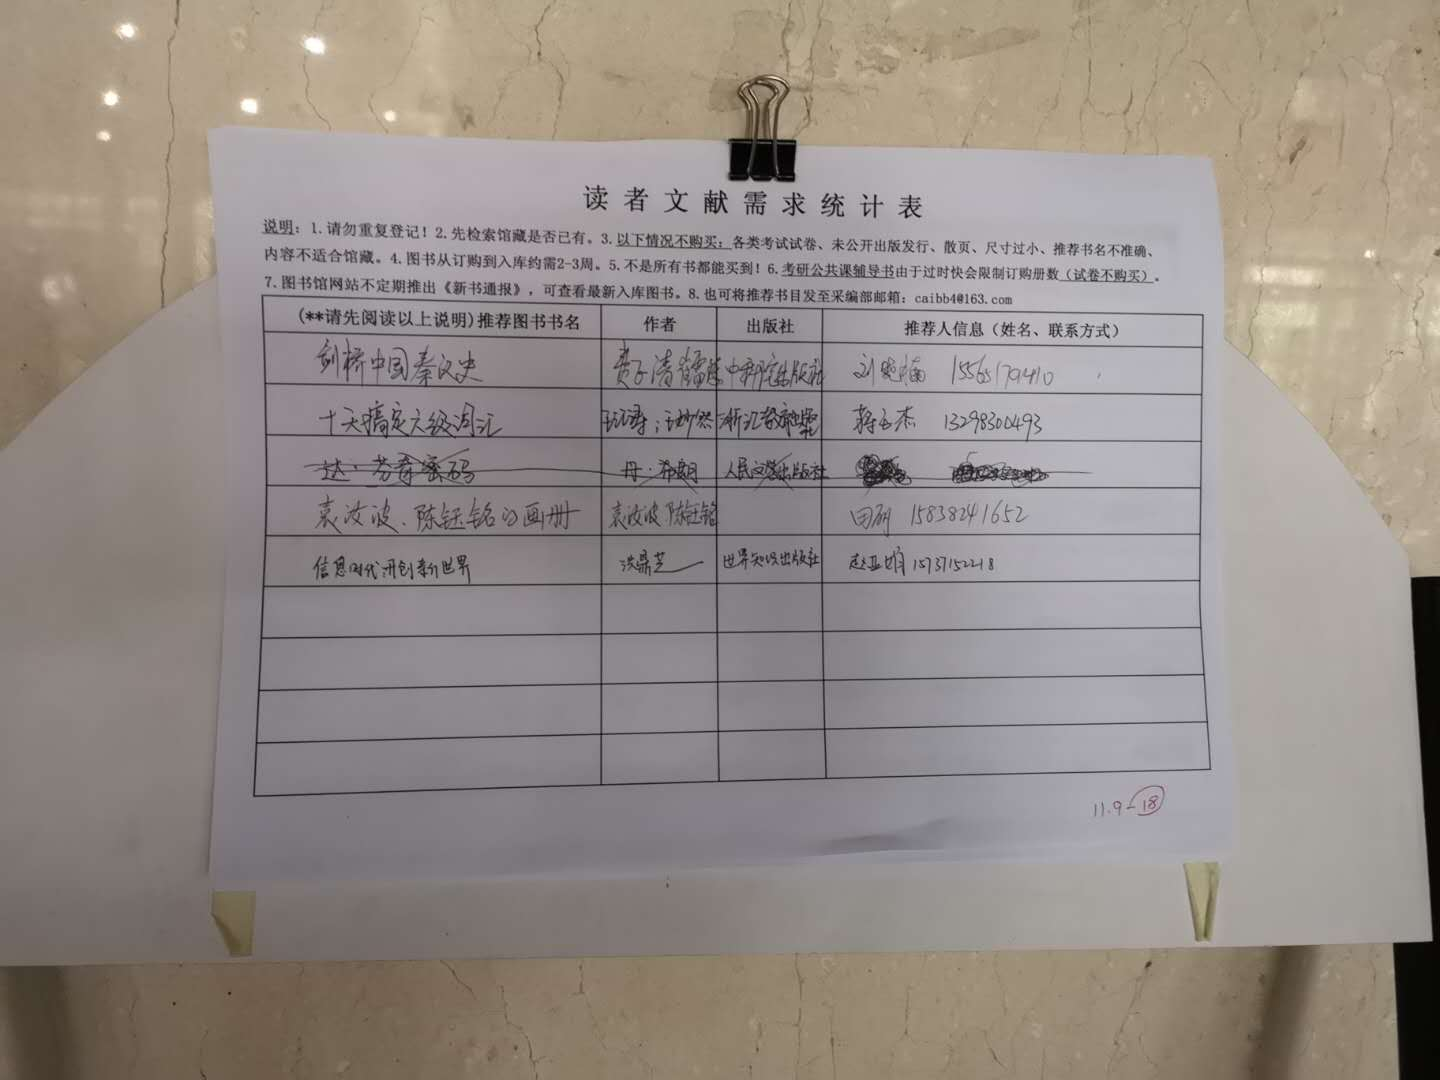 读者文献需求统计表
说明：1.请勿重复登记！2.先检索馆藏是否已有。3.以下情况不购买：各类考试试卷、未公开出版发行、散页、尺寸过小、推荐书名不准确、
内容不适合馆藏。4.图书从订购到入库约需2-3周。5.不是所有书都能买到！6.考研公共课辅导书由于过时快会限制订购册数（试卷不购买）。
7.图书馆网站不定期推出《新书通报》，可查看最新入库图书。8.也可将推荐书目发至采编部邮箱：caibb4@163.com
(**请先阅读以上说明)推荐图书书名 作者 出版社 推荐人信息（姓名、联系方式）
剑桥中国秦汉史 出版社 刘 15565179410
十天搞定六级词汇 13298300493
达·芬奇密码 丹·布朗 人民文学出版社
袁汝波、陈钰铭的画册 袁汝波 陈钰铭 田 15838241652
信息时代开创新世界 洪鼎芝 世界知识出版社 赵亚娟 15737152218
11.9-18